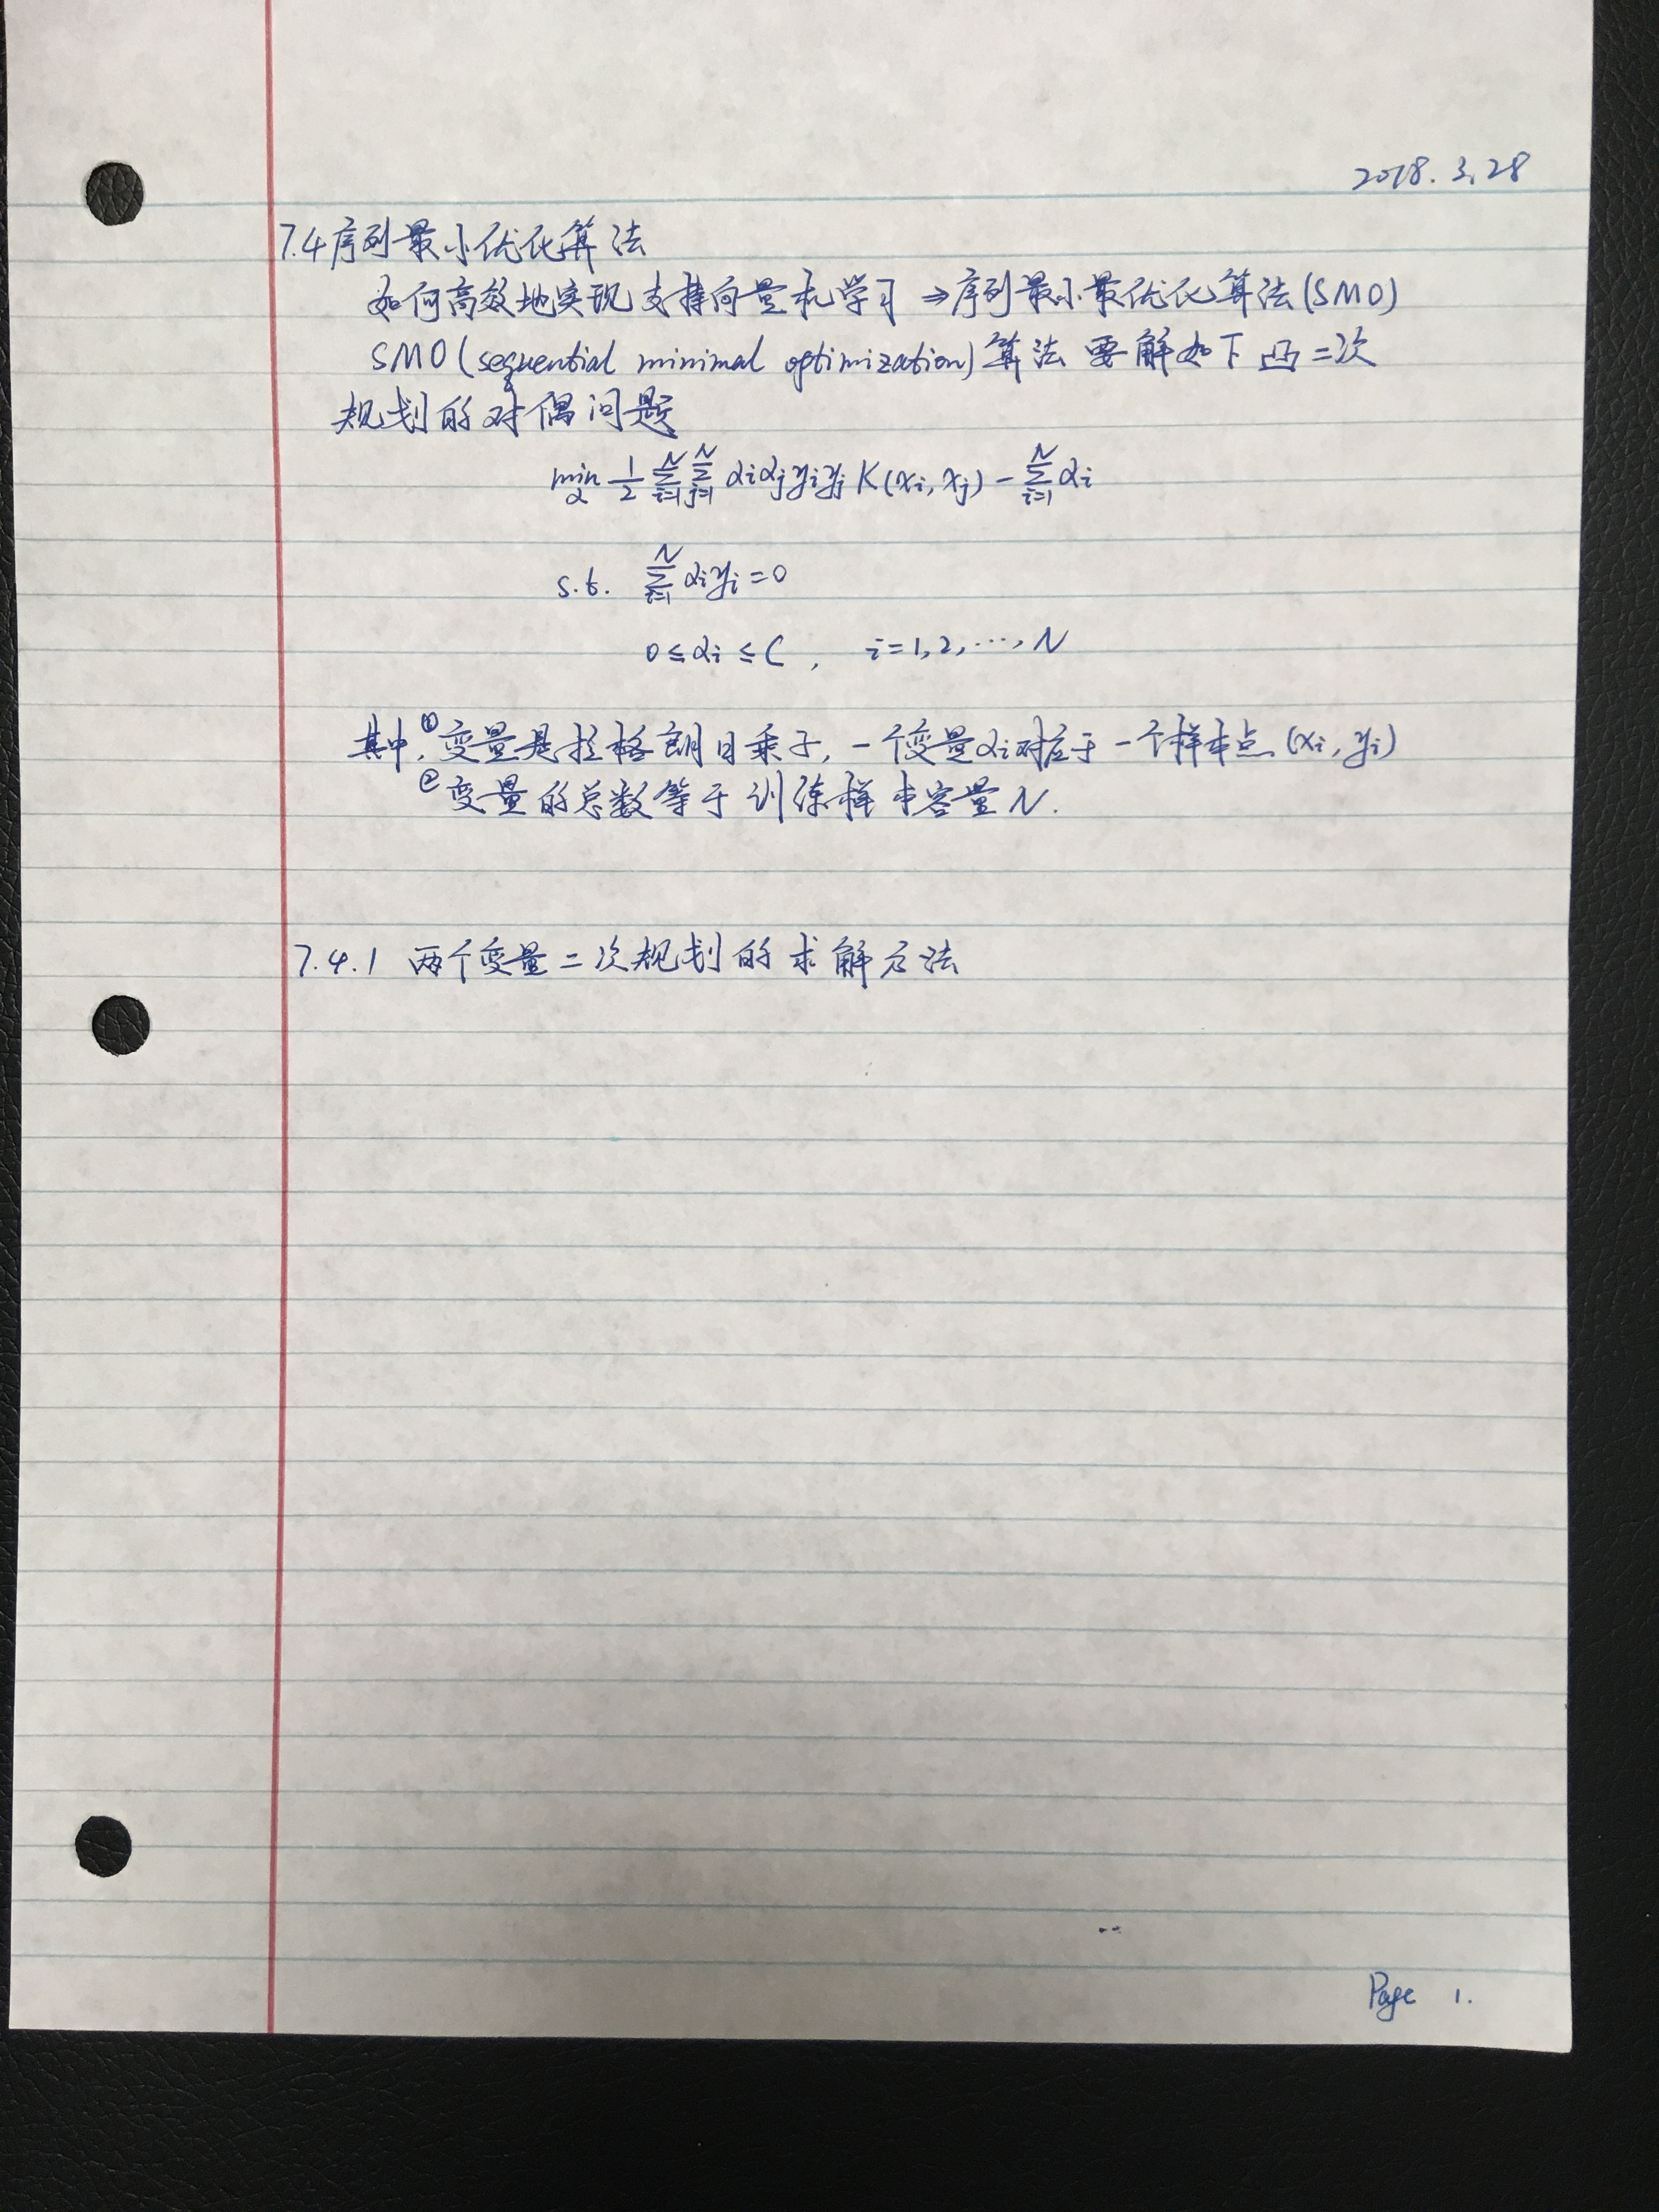 2018.3.28
7.4 序列最小优化算法
如何高效地实现支持向量机学习 ⇒ 序列最小最优化算法(SMO)
SMO(sequential minimal optimization)算法要解如下凸二次
规划的对偶问题
min_α 1/2 ∑_{i=1}^N ∑_{j=1}^N α_i α_j y_i y_j K(x_i, x_j) - ∑_{i=1}^N α_i
s.t. ∑_{i=1}^N α_i y_i = 0
0 ≤ α_i ≤ C, i=1,2,⋯,N
其中,①变量是拉格朗日乘子,一个变量α_i对应于一个样本点(x_i, y_i)
②变量的总数等于训练样本容量N.
7.4.1 两个变量二次规划的求解方法
Page 1.